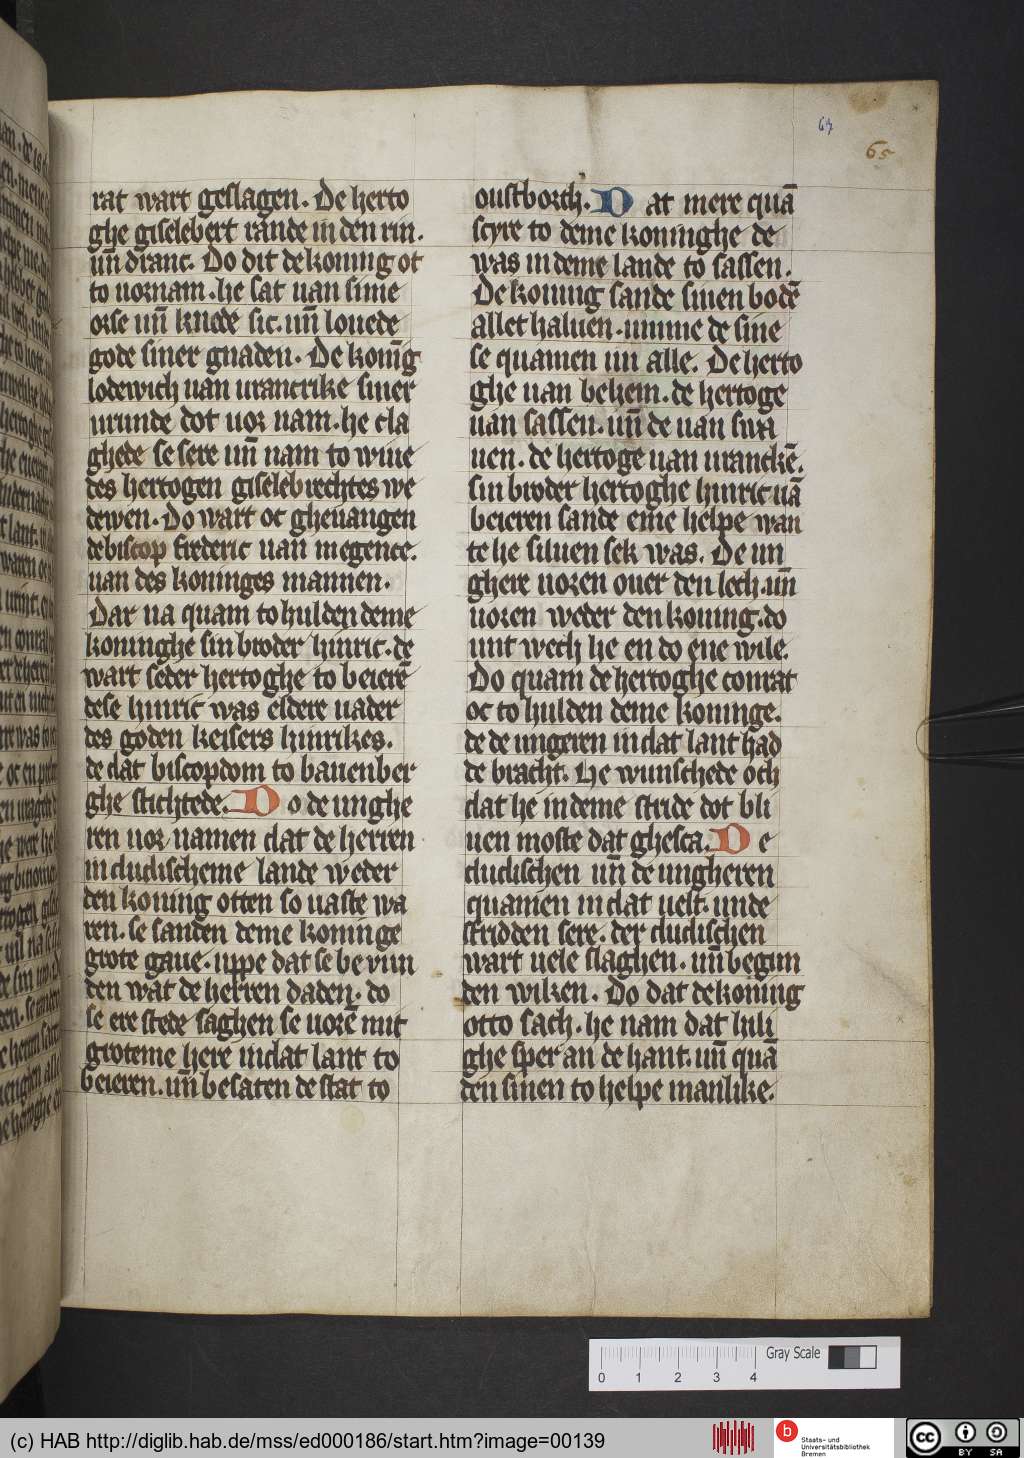 67
65
rat wart geslagen. De herto
ghe giselebert rande in den rin.
uñ dranc. Do dit de koning ot
to uornam. he sat uan sime
orse uñ knede sic. uñ louede
gode siner gnaden. De konīg
lodewich uan urancrike siner
urunde dot uor nam. he cla
ghede se sere uñ nam to wiue
des hertogen giselebrechtes we
dewen. Do wart oc gheuangen
de biscop frederic uan megence.
uan des koninges mannen.
Dar na quam to hulden deme
koninghe sin broder hinric. de
wart seder hertoghe to beierē
dese hinric was eldere uader
des goden keisers hinrikes.
de dat biscopdom to bauenber
ghe stichtede. Do de unghe
ren uor namen dat de herren
in dudischeme lande weder
den koning otten so uaste wa
ren. se sanden deme koninge
grote gaue. uppe dat se be vun
den wat de herren daden. do
se ere stede saghen se uorē mit
groteme here in dat lant to
beieren. uñ besaten de stat to
oustborch. Dat mere quā
scyre to deme koninghe de
was in deme lande to sassen.
De koning sande sinen bodē
allet haluen. unme de sine
se quamen im alle. De herto
ghe uan behem. de hertoge
uan sassen. uñ de uan swa
uen. de hertoge uan uranckē.
sin broder hertoghe hinric uā
beieren sande eme helpe wan
te he siluen sek was. De un
ghere uoren ouer den lech. uñ
uoren weder den koning. do
mit wech he en do ene wile.
Do quam de hertoghe conrat
oc to hulden deme koninge.
de de ungeren in dat lant had
de bracht. He wunschede och
dat he in deme stride dot bli
uen moste dat ghesca. De
dudischen uñ de ungheren
quamen in dat uelt. unde
stridden sere. der dudischen
wart uele slaghen. uñ begun
den wiken. Do dat de koning
otto sach. he nam dat hili
ghe sper an de hant. uñ quā
den sinen to helpe manlike.
Gray Scale
0 1 2 3 4
(c) HAB http://diglib.hab.de/mss/ed000186/start.htm?image=00139
b
Staats- und
Universitätsbibliothek
Bremen
cc
BY SA